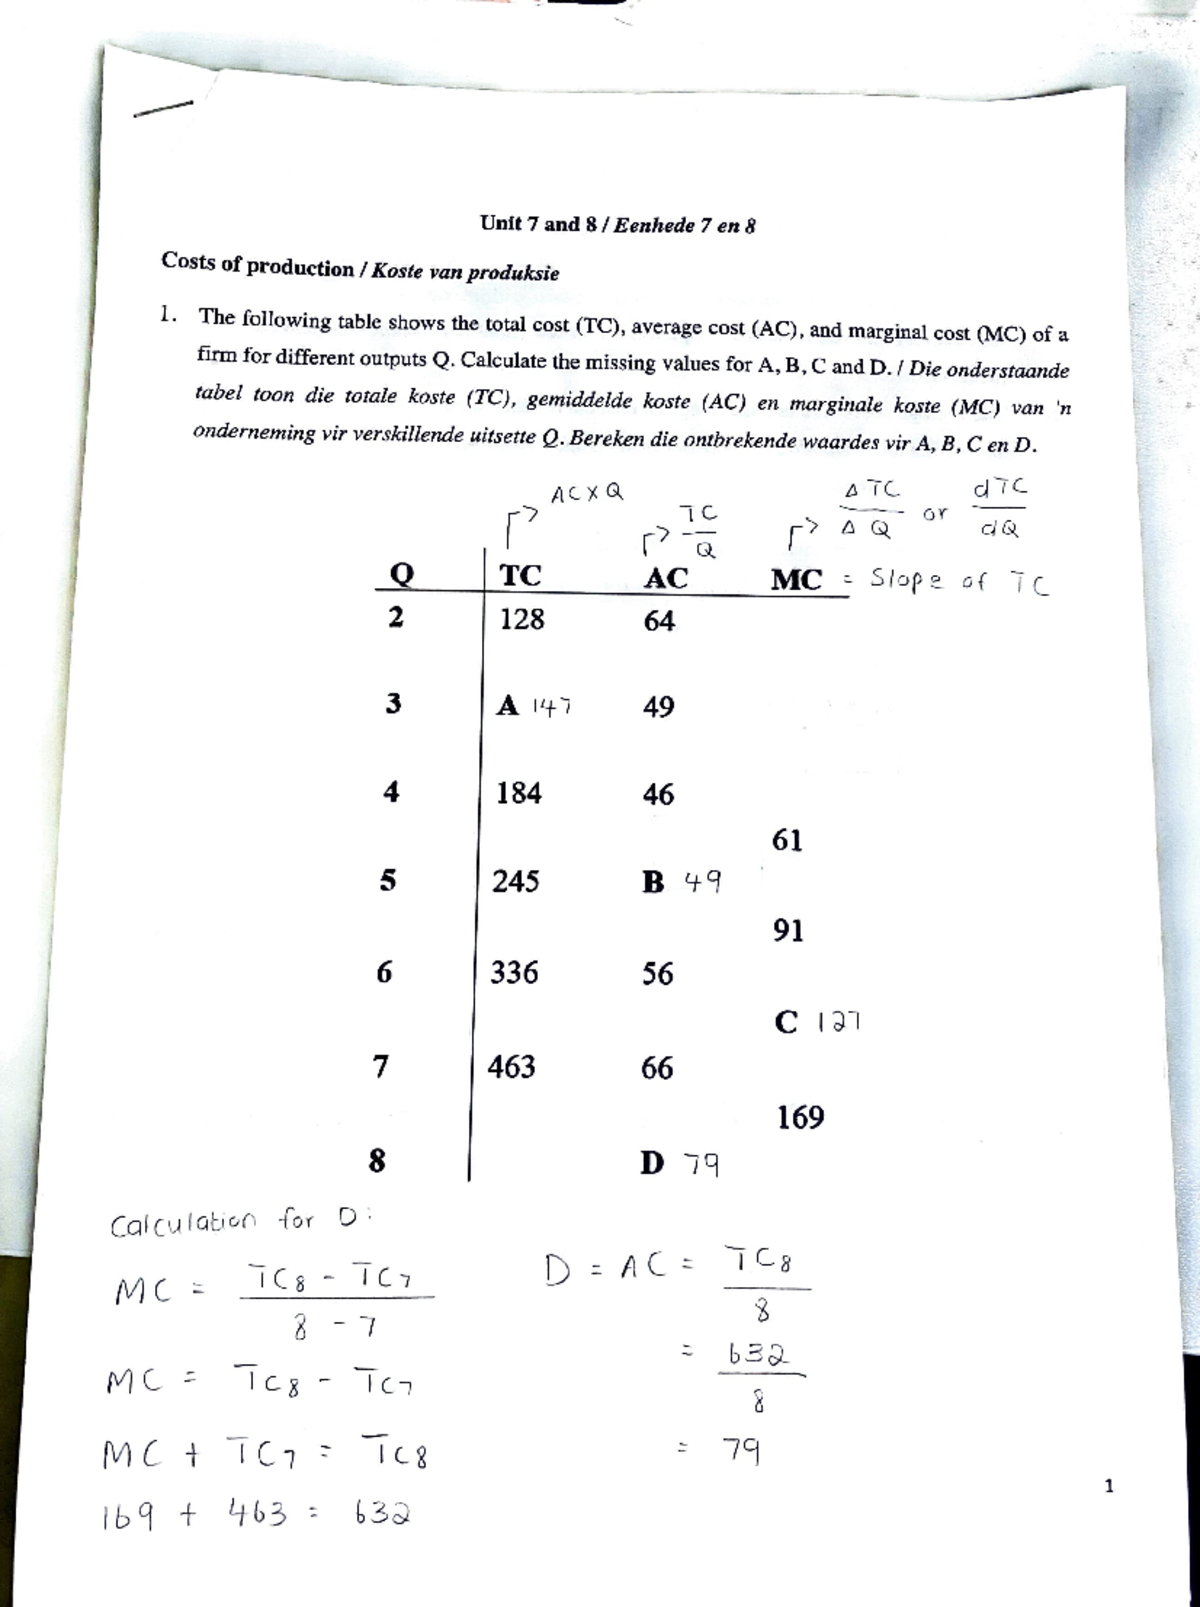 Unit 7 and 8 / Eenhede 7 en 8
Costs of production / Koste van produksie
1. The following table shows the total cost (TC), average cost (AC), and marginal cost (MC) of a
firm for different outputs Q. Calculate the missing values for A, B, C and D. / Die onderstaande
tabel toon die totale koste (TC), gemiddelde koste (AC) en marginale koste (MC) van 'n
onderneming vir verskillende uitsette Q. Bereken die ontbrekende waardes vir A, B, C en D.
AC x Q TC/Q ΔTC/ΔQ or dTC/dQ
Q TC AC MC = Slope of TC
2 128 64
3 A 147 49
4 184 46
61
5 245 B 49
91
6 336 56
C 127
7 463 66
169
8 D 79
Calculation for D:
MC = TC8 - TC7 / 8 - 7
MC = TC8 - TC7
MC + TC7 = TC8
169 + 463 = 632
D = AC = TC8 / 8
= 632 / 8
= 79
1